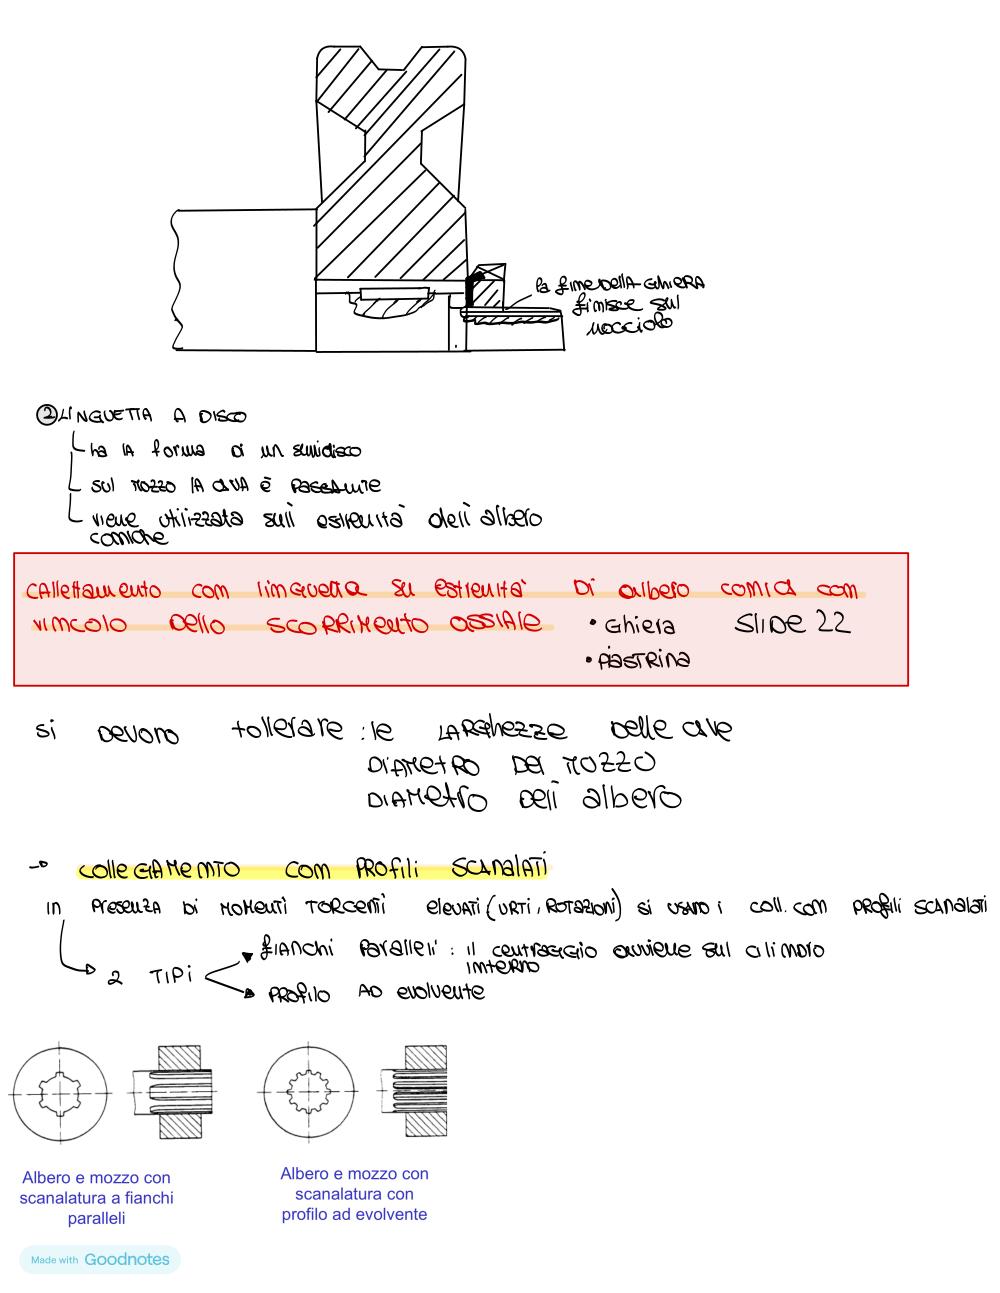 la fine DELLA GHIERA
finisce sul
nocciolo
② LINGUETTA A DISCO
ha la forma di un semidisco
sul mozzo la cava è passante
viene utilizzata sull'estremità dell'albero
coniche
Callettamento con linguetta su estremità di albero conica con
vincolo dello scorrimento assiale • Ghiera SLIDE 22
• Piastrina
si devono tollerare : le larghezze delle cave
diametro del mozzo
diametro dell'albero
→ collegamento con profili scanalati
in presenza di momenti torcenti elevati (urti, rotazioni) si usano i coll. con profili scanalati
fianchi paralleli : il centraggio avviene sul cilindro
interno
2 TIPI
profilo ad evolvente
Albero e mozzo con
scanalatura a fianchi
paralleli
Albero e mozzo con
scanalatura con
profilo ad evolvente
Made with Goodnotes